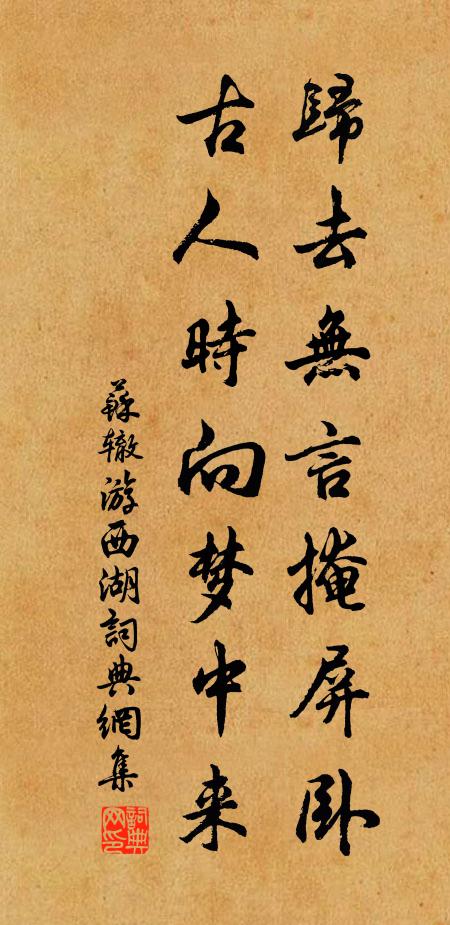 歸去無言掩屏卧
古人時向梦中来
蘇辙游西湖詞典網集
詞典网印